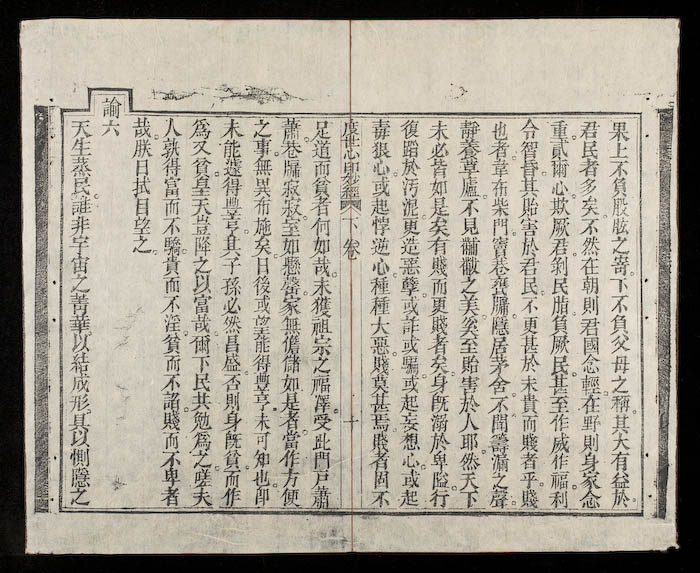 果上不負股肱之寄下不負父母之稱其大有益於
君民者多矣不然在朝則君國念輕在野則身家念
重貳爾心欺厥君剝民脂負厥民甚至作威作福利
令智昏其貽害於君民不更甚於未貴而賤者乎賤
也者韋布柴門窶巷甕牖隱居茅舍不聞籌漏之聲
靜養草廬不見黼黻之美奚至貽害於人耶然天下
未必皆如是矣有賤而更賤者矣身旣溺於卑隘行
復蹈於汚泥更造惡孽或詐或騙或起妄想心或起
毒狠心或起悖逆心種種大惡賤莫甚焉賤者固不
度世心印妙經 下卷 十
足道而貧者何如哉未獲祖宗之福澤受此門戸蕭
蕭巷牖寂寂室如懸罄家無儋儲如是者當作方便
之事無異布施矣日後或望能得豐亨未可知也卽
未能遽得豐亨其子孫必然昌盛否則身旣貧而作
爲又貧皇天豈降之以富哉爾下民共勉爲之嗟夫
人孰得富而不驕貴而不淫貧而不諸賤而不卑者
哉朕日拭目望之
諭六
天生蒸民誰非宇宙之菁華以結成形具以惻隱之